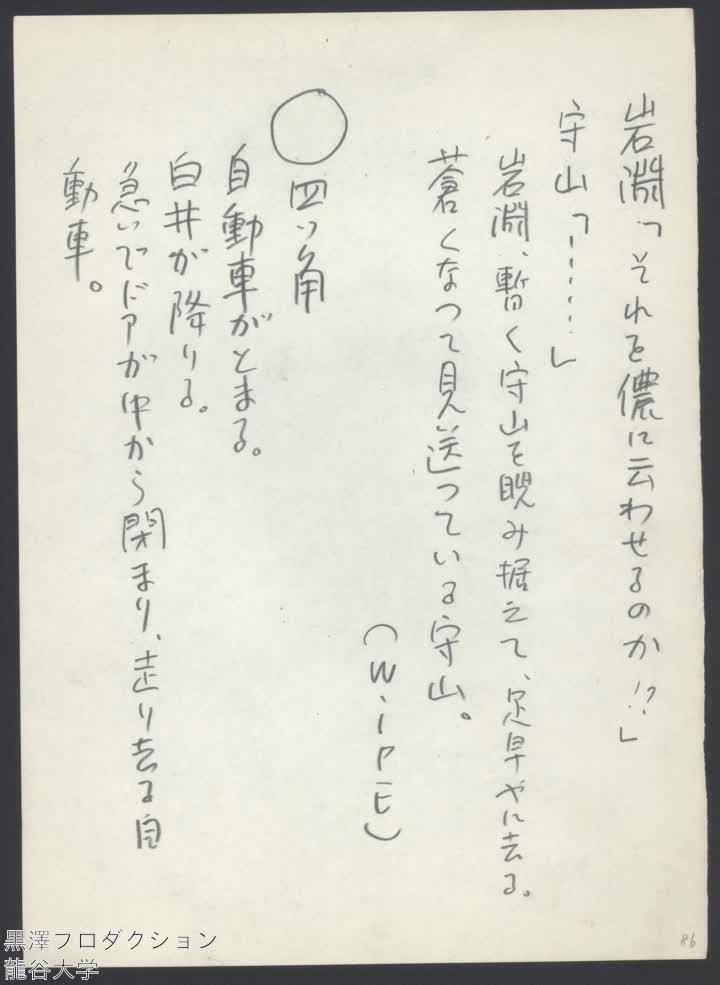 岩淵「それを儂に云わせるのか!?」
守山「……」
岩淵、暫く守山を睨み据えて、足早やに去る。
蒼くなって見送っている守山。
(WiPE)
○ 四ツ角
自動車がとまる。
白井が降りる。
急いでドアが中から閉まり、走り去る自
動車。
86
黒澤プロダクション
龍谷大学